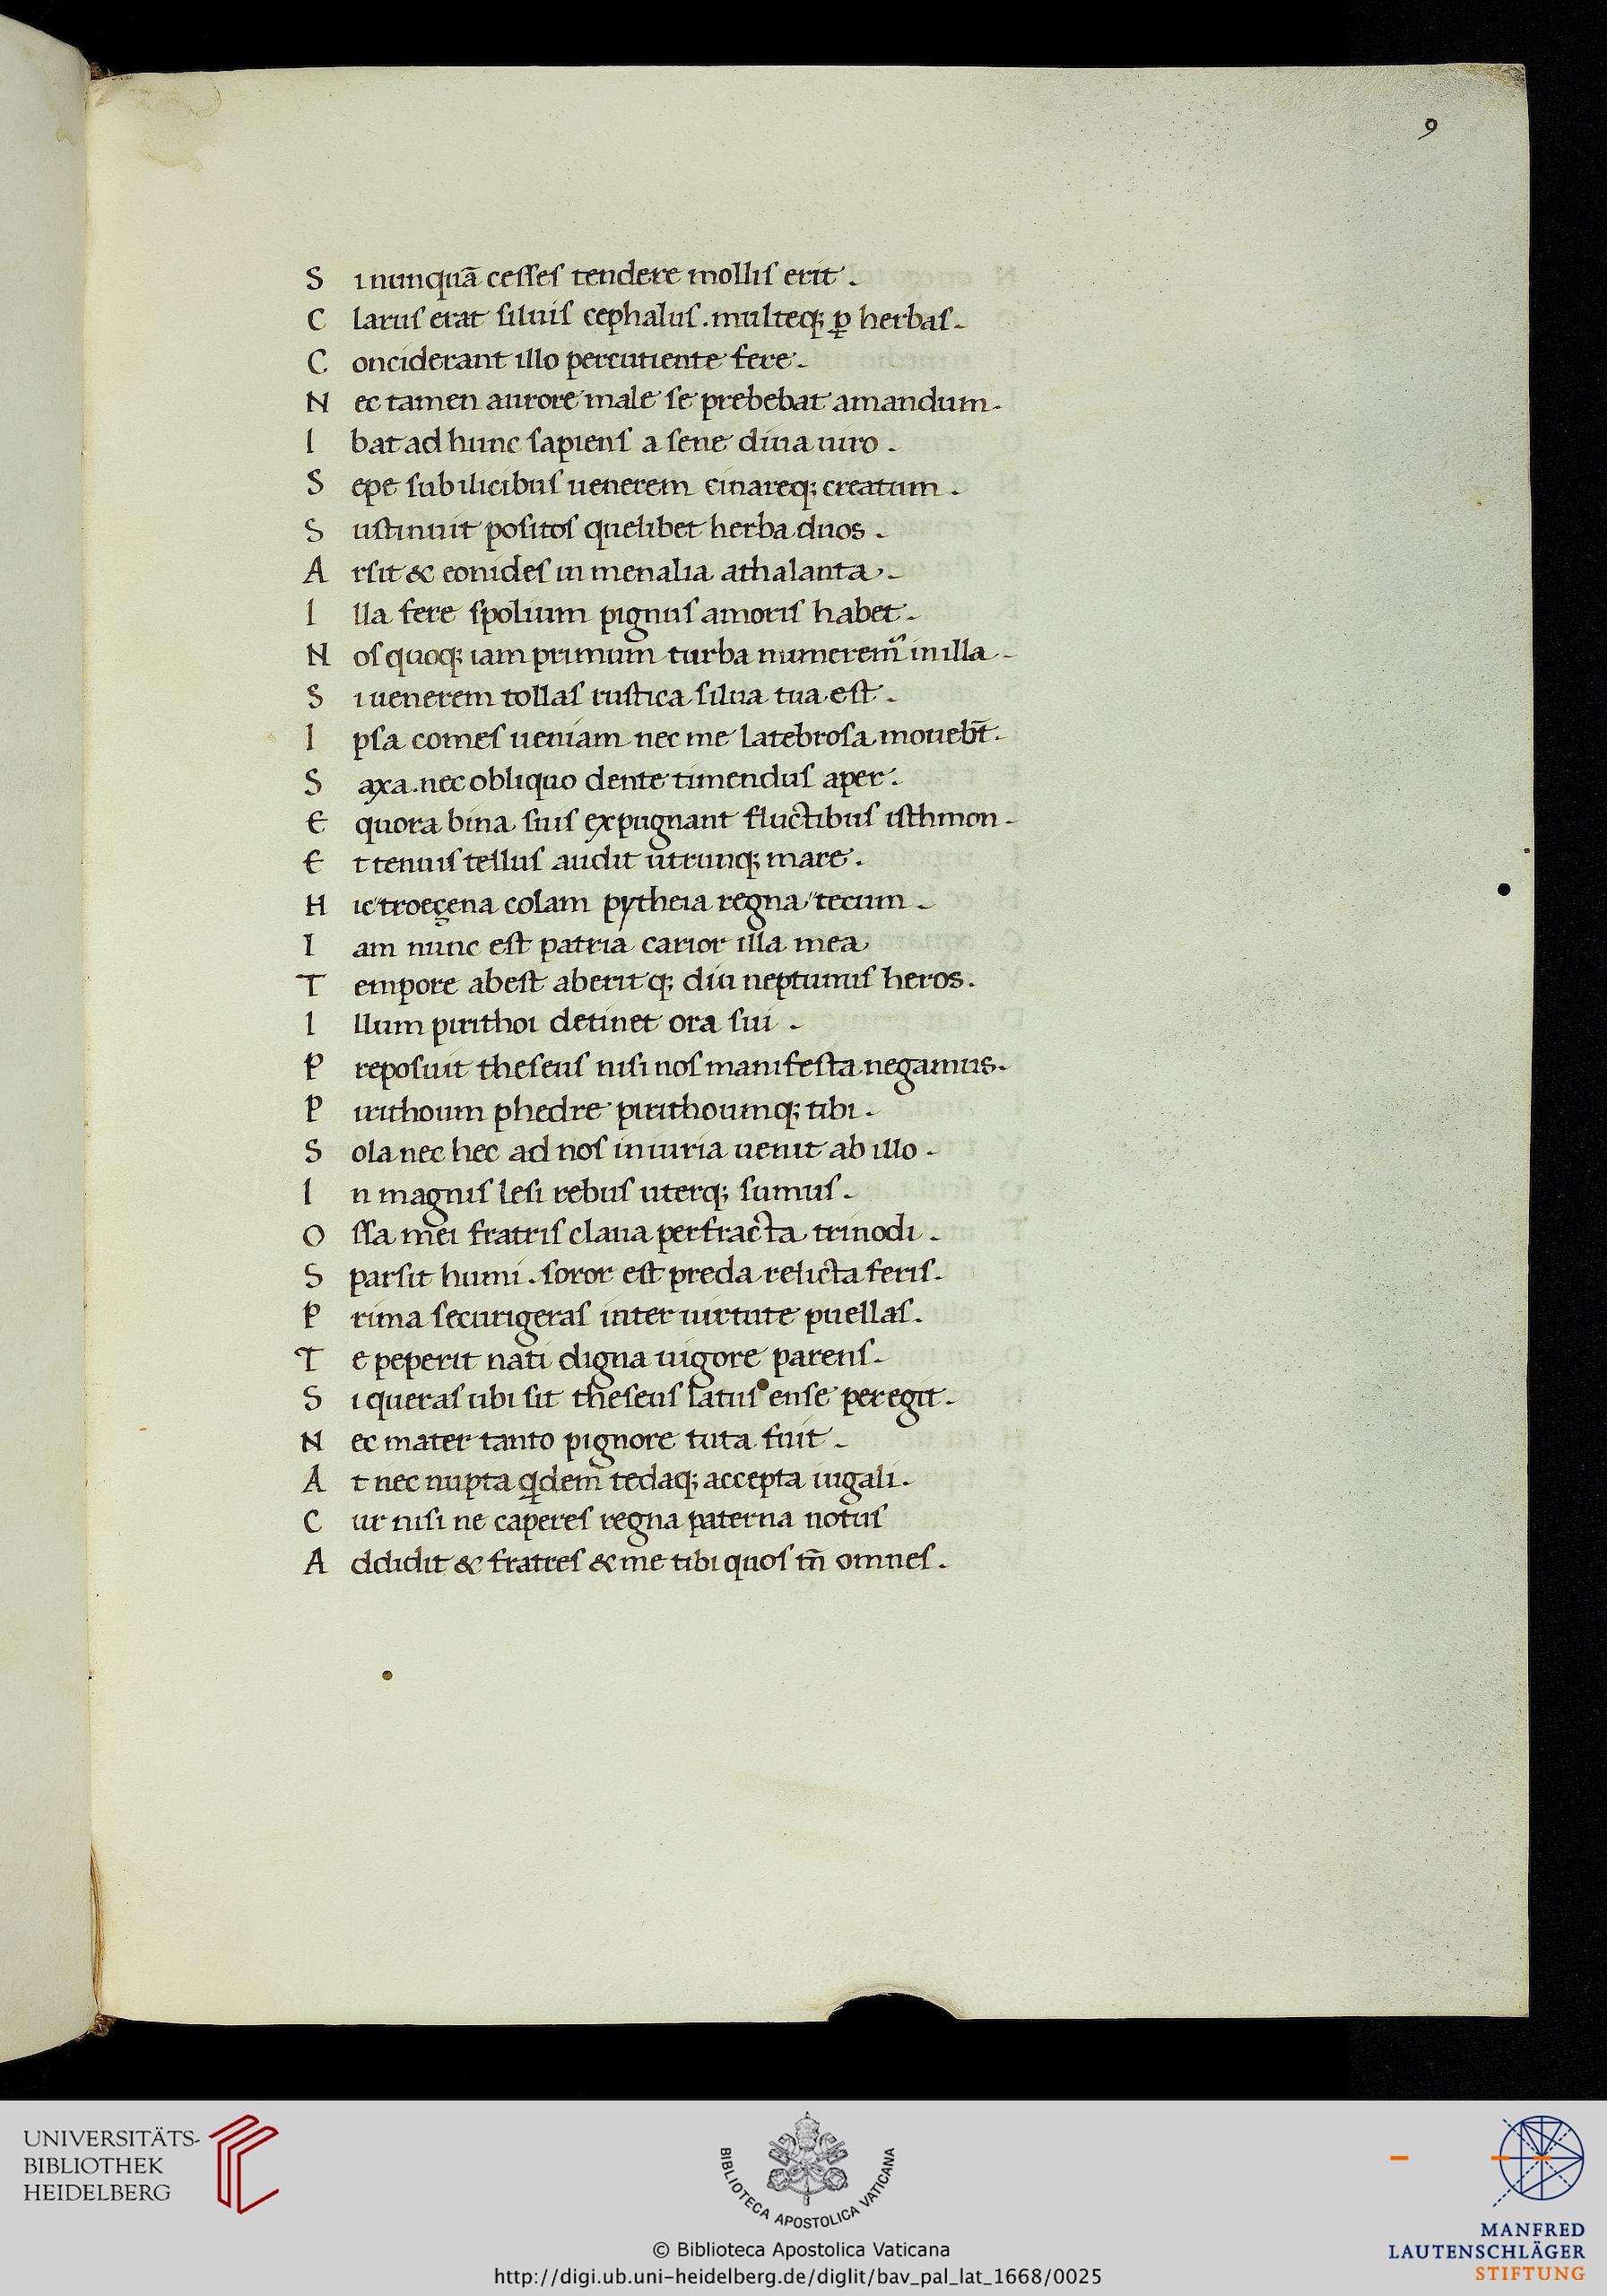 9
S i nunquā cesses tendere mollis erit .
C larus erat siluis cephalus . multeq; ꝑ herbas .
C onciderant illo percutiente fere .
N ec tamen aurore male se prebebat amandum .
I bat ad hunc sapiens a sene diua uiro .
S epe sub ilicibus uenerem cinareq; creatum .
S ustinuit positos quelibet herba duos .
A rsit & eonides in menalia athalanta .
I lla fere spolium pignus amoris habet .
N os quoq; iam primum turba numerem᷒ in illa .
S i uenerem tollas rustica silua tua est .
I psa comes ueniam nec me latebrosa mouebt̄ .
S axa . nec obliquo dente timendus aper .
E quora bina suis expugnant fluctibus isthmon .
E t tenuis tellus audit utrunq; mare .
H ic troeçena colam pytheia regna tecum .
I am nunc est patria carior illa mea
T empore abest aberit q; diu neptunus heros .
I llum pirithoi detinet ora sui .
P reposuit theseus nisi nos manifesta negamus .
P irithoum phedre pirithoumq; tibi .
S ola nec hec ad nos iniuria uenit ab illo .
I n magnis lesi rebus uterq; sumus .
O ssa mei fratris claua perfracta trinodi .
S parsit humi . soror est preda relicta feris .
P rima securigeras inter uirtute puellas .
T e peperit nati digna uigore parens .
S i queras ubi sit theseus latus ense peregit .
N ec mater tanto pignore tuta fuit .
A t nec nupta qͥdem tedaq; accepta iugali .
C ur nisi ne caperes regna paterna notus
A ddidit & fratres & me tibi quos tn̄ omnes .
UNIVERSITÄTS-
BIBLIOTHEK
HEIDELBERG
BIBLIOTECA APOSTOLICA VATICANA
© Biblioteca Apostolica Vaticana
http://digi.ub.uni-heidelberg.de/diglit/bav_pal_lat_1668/0025
MANFRED
LAUTENSCHLÄGER
STIFTUNG